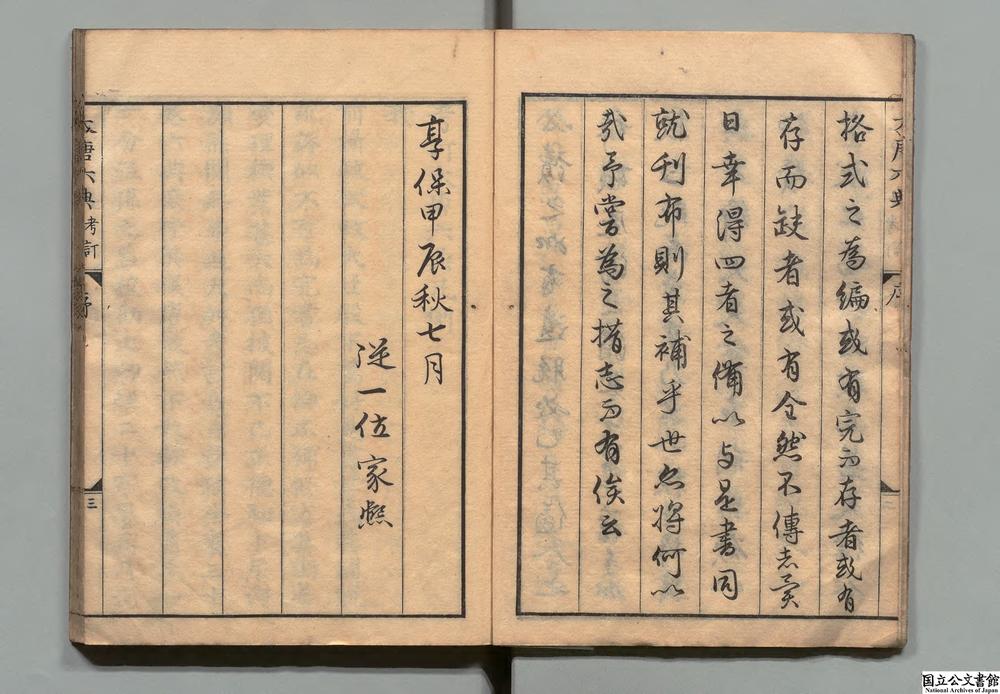 格式之為編或有完而存者或有
存而缺者或有全然不傳者異
日幸得四者之備以与是書同
就刊布則其補乎世亦將何以
哉予嘗為之措志而有俟云
享保甲辰秋七月
從一位家熈
大唐六典考訂 序 三
国立公文書館
National Archives of Japan